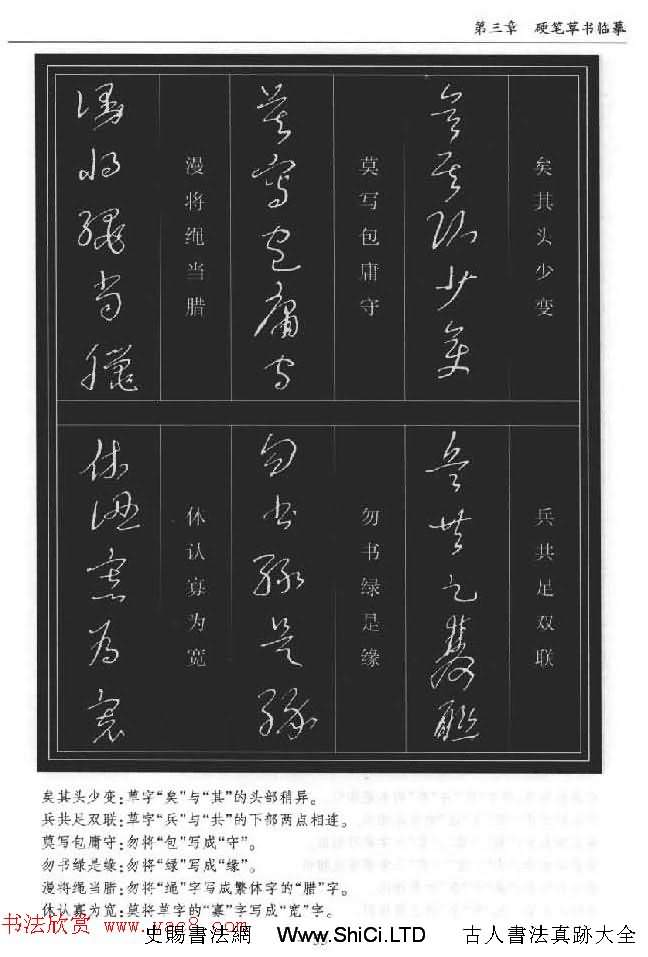 第三章 硬笔草书临摹
矣其头少变
莫写包庸守
漫将绳当腊
兵共足双联
勿书绿是缘
休认寡为宽
矣其头少变:草字“矣”与“其”的头部稍异。
兵共足双联:草字“兵”与“共”的下部两点相连。
莫写包庸守:勿将“包”写成“守”。
勿书绿是缘:勿将“绿”写成“缘”。
漫将绳当腊:勿将“绳”字写成繁体字的“腊”字。
休认寡为宽:莫将草字的“寡”字写成“宽”字。
书法欣赏 www.yac8.com
史賜書法網 Www.ShiCi.LTD 古人書法真跡大全